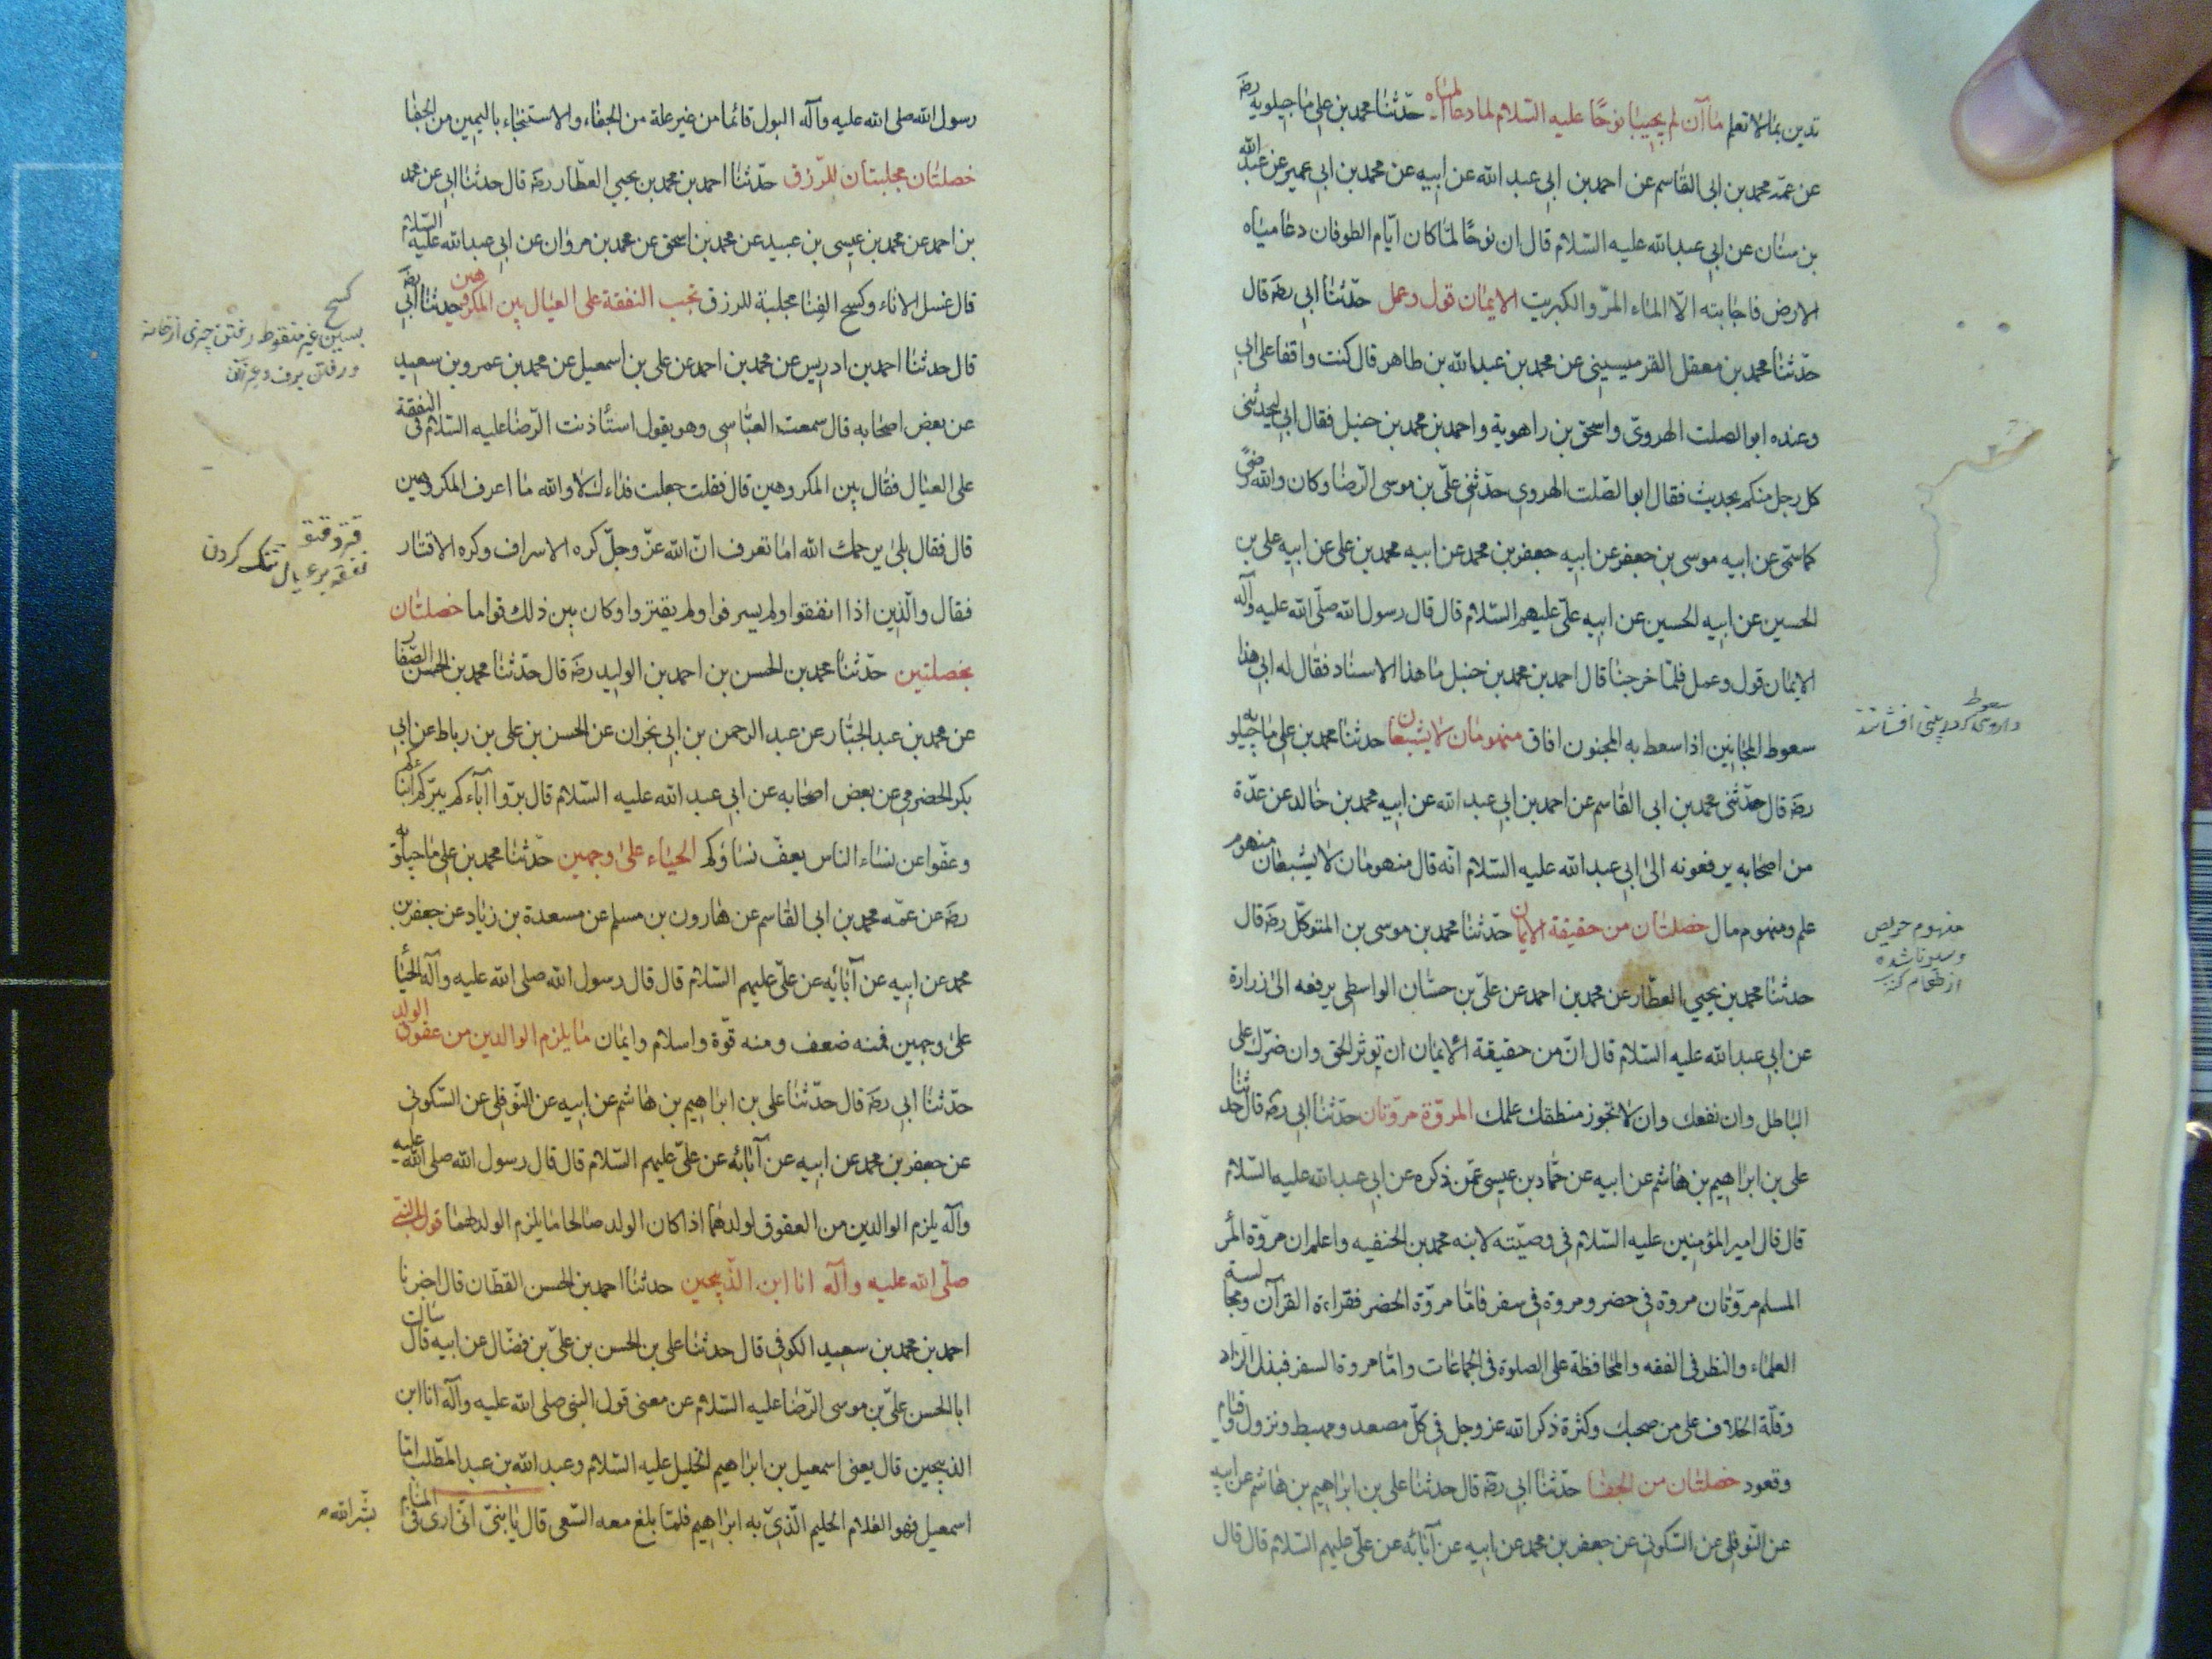 تدين بما لا تعلم ماآن لم يجيبا نوحًا عليه السّلام لما دعا المياه حدّثنا محمد بن على ماجيلويه رضه
عن عمّه محمد بن ابى القاسم عن احمد بن ابى عبد الله عن ابيه عن محمد بن ابى عمير عن عبد الله
بن سنان عن ابى عبد الله عليه السّلام قال ان نوحًا لمّا كان ايّام الطوفان دعا مياه
الارض فاجابته الّا الماء المرّ والكبريت الايمان قول وعمل حدّثنا ابى رضه قال
حدّثنا محمد بن معقل القرميسينى عن محمد بن عبد الله بن طاهر قال كنت واقفا على ابى
وعنده ابو الصلت الهروىّ واسحق بن راهوية واحمد بن محمد بن حنبل فقال ابى ليحدثنى
كل رجل منكم بحديث فقال ابو الصّلت الهروى حدّثنى علىّ بن موسى الرّضا وكان والله رضىً
كما سمّى عن ابيه موسى بن جعفر عن ابيه جعفر بن محمد عن ابيه محمد بن على عن ابيه على بن
الحسين عن ابيه الحسين عن ابيه علىّ عليهم السّلام قال قال رسول الله صلّى الله عليه وآله
الايمان قول وعمل فلمّا خرجنا قال احمد بن محمد بن حنبل ما هذا الاسناد فقال له ابى هذا
سعوط المجانين اذا سعط به المجنون افاق منهومان لا يشبعان حدثنا محمد بن على ماجيلويه
رضه قال حدّثنى محمد بن ابى القاسم عن احمد بن ابى عبد الله عن ابيه محمد بن خالد عن عدّة
من اصحابه يرفعونه الى ابى عبد الله عليه السّلام انّه قال منهومان لا يشبعان منهوم
علم ومنهوم مال خصلتان من حقيقة الايمان حدّثنا محمد بن موسى بن المتوكّل رضه قال
حدثنا محمد بن يحيى العطّار عن محمد بن احمد عن علىّ بن حسّان الواسطى يرفعه الى زرارة
عن ابى عبد الله عليه السّلام قال انّ من حقيقة الايمان ان تؤثر الحق وان ضرّك على
الباطل وان نفعك وان لا تجوز منطقك علمك المروّة مروّتان حدّثنا ابى رضه قال حدثنا
على بن ابراهيم بن هاشم عن ابيه عن حمّاد بن عيسى عمّن ذكره عن ابى عبد الله عليه السّلام
قال قال امير المؤمنين عليه السّلام فى وصيّته لابنه محمد بن الحنفيه واعلم ان مروّة المر
المسلم مروّتان مروة فى حضر ومروة فى سفر فامّا مروّة الحضر فقراءة القرآن ومجالسة
العلماء والنظر فى الفقه والمحافظة على الصلوة فى الجماعات وامّا مروة السفر فبذل الزاد
وقلّة الخلاف على من صحبك وكثرة ذكر الله عز وجل فى كلّ مصعد ومهبط ونزول وقيام
وقعود خصلتان من الجفا حدّثنا ابى رضه قال حدثنا على بن ابراهيم بن هاشم عن ابيه
عن النّوفلى عن السّكونى عن جعفر بن محمد عن ابيه عن آبائه عن علىّ عليهم السّلام قال قال
سعوط
منهوم حريص
رسول الله صلى الله عليه وآله البول قائما من غير علة من الجفاء والاستنجاء باليمين من الجفا
خصلتان مجلبتان للرّزق حدّثنا احمد بن محمد بن يحيى العطّار رضه قال حدثنا ابى عن محمد
بن احمد عن محمد بن عيسى بن عبيد عن محمد بن اسحق عن محمد بن مروان عن ابى عبد الله عليه السّلام
قال غسل الاناء وكسح الفنا مجلبة للرزق تجب النفقة على العيال بين المكروهين حدثنا ابى رضه
قال حدثنا احمد بن ادريس عن محمد بن احمد عن على بن اسمعيل عن محمد بن عمرو بن سعيد
عن بعض اصحابه قال سمعت العبّاسى وهو يقول استأذنت الرّضا عليه السّلام فى النفقة
على العيال فقال بين المكروهين قال فقلت جعلت فداءك لا والله ما اعرف المكروهين
قال فقال بلى يرحمك الله اما تعرف انّ الله عزّ وجلّ كره الاسراف وكره الاقتار
فقال والّذين اذا انفقوا ولم يسرفوا ولم يقتروا وكان بين ذلك قواما خصلتان
بخصلتين حدّثنا محمد بن الحسن بن احمد بن الوليد رضه قال حدّثنا محمد بن الحسن الصّفار
عن محمد بن عبد الجبّار عن عبد الرحمن بن ابى نجران عن الحسن بن على بن رباط عن ابى
بكر الحضرمى عن بعض اصحابه عن ابى عبد الله عليه السّلام قال برّوا آباءكم يبرّكم ابناءكم
وعفّوا عن نساء الناس يعفّ نساؤكم الحياء على وجهين حدّثنا محمد بن على ماجيلويه
رضه عن عمّه محمد بن ابى القاسم عن هارون بن مسلم عن مسعدة بن زياد عن جعفر بن
محمد عن ابيه عن آبائه عن علىّ عليهم السّلام قال قال رسول الله صلى الله عليه وآله الحيا
على وجهين فمنه ضعف ومنه قوّة واسلام وايمان ما يلزم الوالدين من عقوق الولد
حدّثنا ابى رضه قال حدّثنا على بن ابراهيم بن هاشم عن ابيه عن النّوفلى عن السّكونى
عن جعفر بن محمد عن ابيه عن آبائه عن علىّ عليهم السّلام قال قال رسول الله صلى الله عليه
وآله يلزم الوالدين من العقوق لولدهما اذا كان الولد صالحا ما يلزم الولد لهما قول النبىّ
صلّى الله عليه وآله انا ابن الذّبيحين حدثنا احمد بن الحسن القطّان قال اخبرنا
احمد بن محمد بن سعيد الكوفى قال حدثنا على بن الحسن بن علىّ بن فضّال عن ابيه قال سالت
ابا الحسن علىّ بن موسى الرّضا عليه السّلام عن معنى قول النبى صلى الله عليه وآله انا ابن
الذبيحين قال يعنى اسمعيل بن ابراهيم الخليل عليه السّلام وعبد الله بن عبد المطّلب امّا
اسمعيل فهو الغلام الحليم الّذى به ابراهيم فلمّا بلغ معه السّعى قال يا بنىّ انّى ارى فى المنام
كسح
بسين غير منقوط رفتن چيزى از خانه
نفقه بر عيال تنگ كردن
بشّر الله